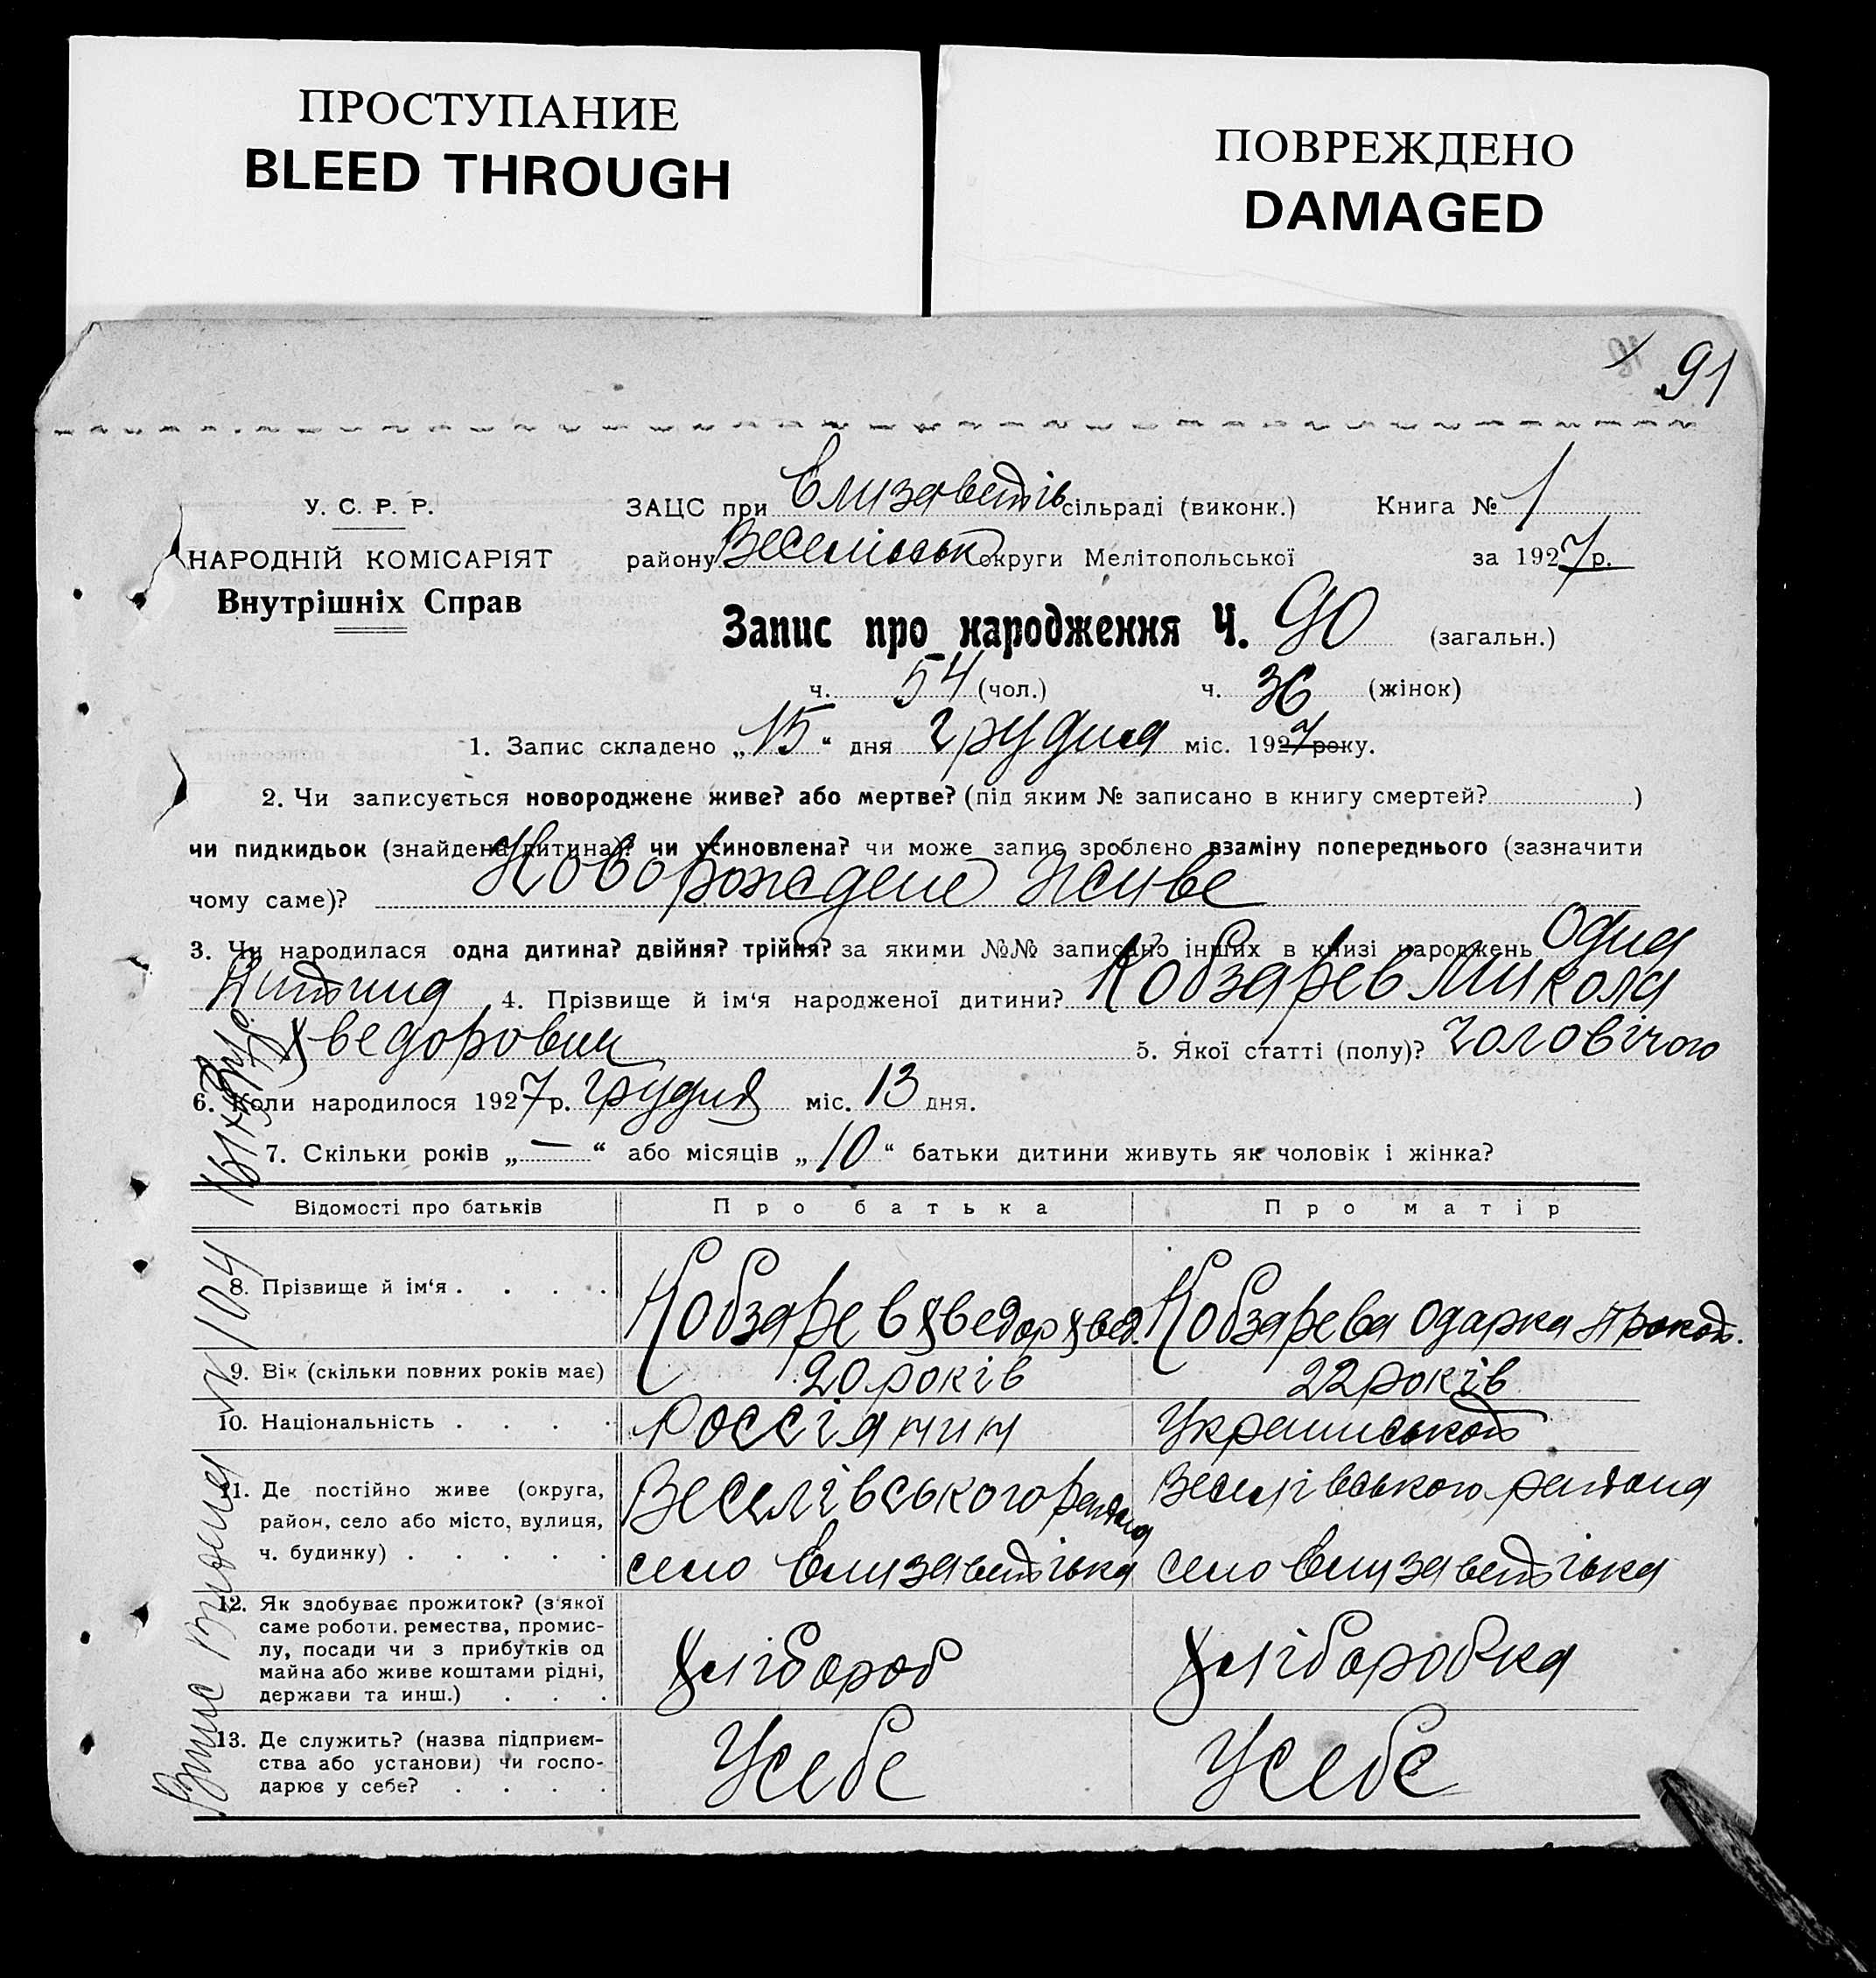 ПРОСТУПАНИЕ
BLEED THROUGH
ПОВРЕЖДЕНО
DAMAGED
91
У. С. Р. Р.
НАРОДНІЙ КОМІСАРІЯТ
Внутрішніх Справ
ЗАЦС при Єлизаветів сільраді (виконк.) Книга № 1
району Веселівськ округи Мелітопольської за 1927 р.
Запис про народження Ч. 90 (загальн.)
ч. 54 (чол.) ч. 36 (жінок)
1. Запис складено „15“ дня грудня міс. 1927 року.
2. Чи записується новороджене живе? або мертве? (під яким № записано в книгу смертей? )
чи пидкидьок (знайдена дитина)? чи усиновлена? чи може запис зроблено взаміну попереднього (зазначити
чому саме)? Новорожедене живе
3. Чи народилася одна дитина? двійня? трійня? за якими №№ записано інших в книзі народжень Одна
дитина 4. Прізвище й ім‘я народженої дитини? Кобзарев Микола
Хведорович 5. Якої статті (полу)? чоловічого
6. Коли народилося 1927 р. грудня міс. 13 дня.
7. Скільки років „—“ або місяців „10“ батьки дитини живуть як чоловік і жінка?
Відомості про батьків Про батька Про матір
8. Прізвище й ім‘я . . . . Кобзарев Хведор Хвед. Кобзарева Одарка Прокоп.
9. Вік (скільки повних років має) 20 років 22 років
10. Національність . . . . Россіянин Украиньской
11. Де постійно живе (округа, район, село або місто, вулиця, ч. будинку) . . . . .
Веселівського района Веселівського района
село Єлизаветівка село Єлизаветівка
12. Як здобуває прожиток? (з‘якої
саме роботи, ремества, промис-
лу, посади чи з прибутків од
майна або живе коштами рідні,
держави та инш.) . . .
Хлібороб Хліборобка
13. Де служить? (назва підприєм-
ства або установи) чи госпо-
дарює у себе? . . . .
Усебе Усебе